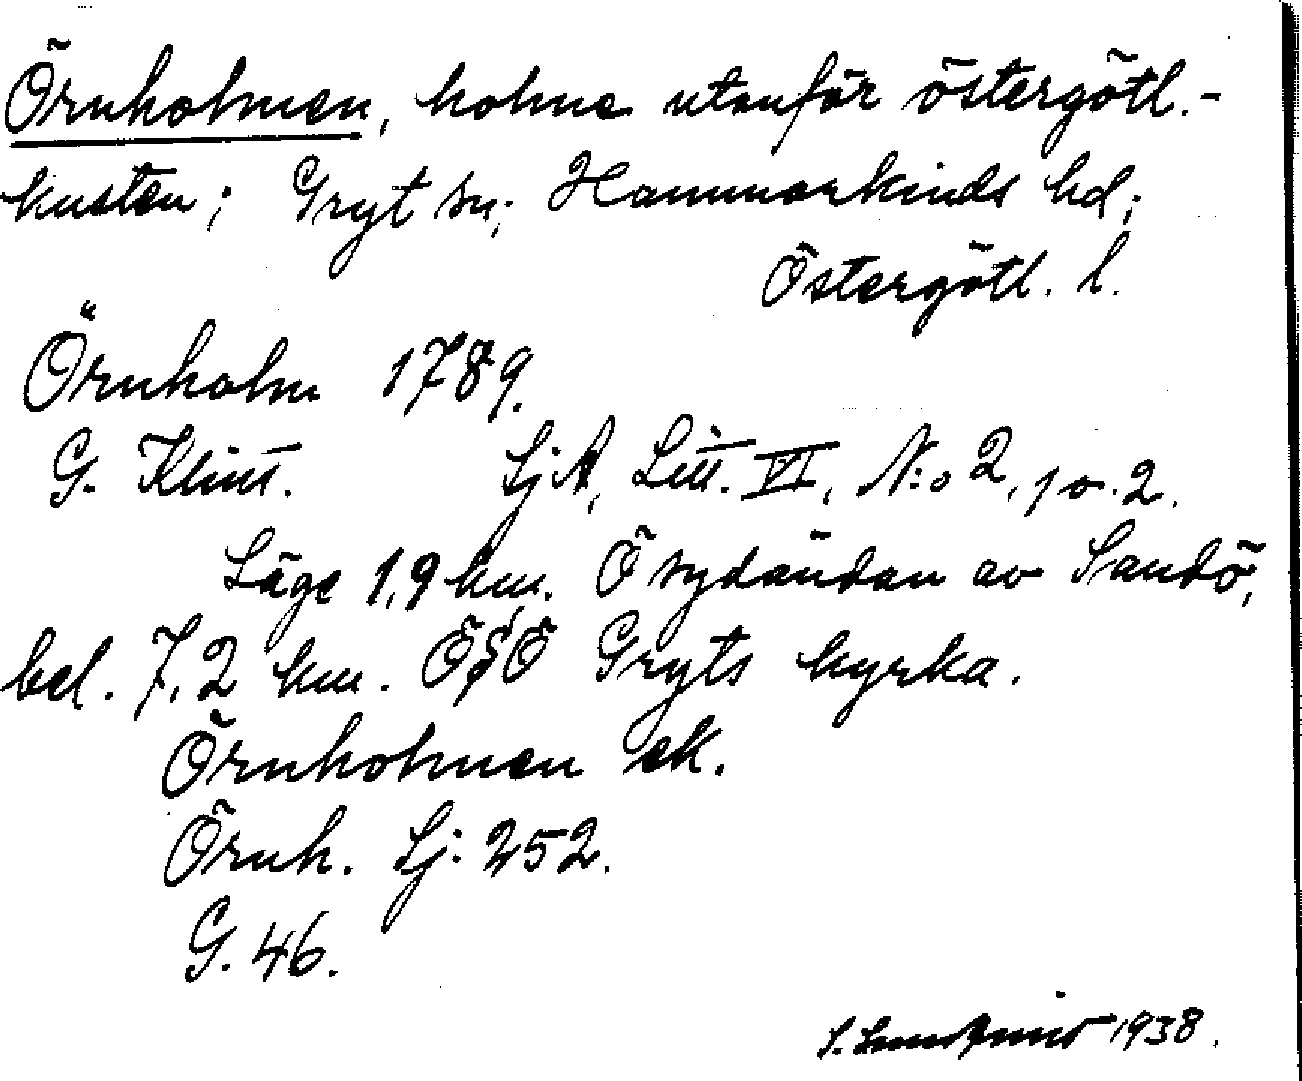 Örnholmen, holme utanför östergötl.-
kusten; Gryt sn; Hammarkinds hd;
Östergötl. l.
Örnholm 1789.
G. Klint. SjA, Litt. VI, N:o 2, p. 2.
Läge 1,9 km. Ö sydändan av Sandö,
bel. 7,2 km. ÖSÖ Gryts kyrka.
Örnholmen ek.
Örnh. Sj: 252.
G. 46.
S. 1938.